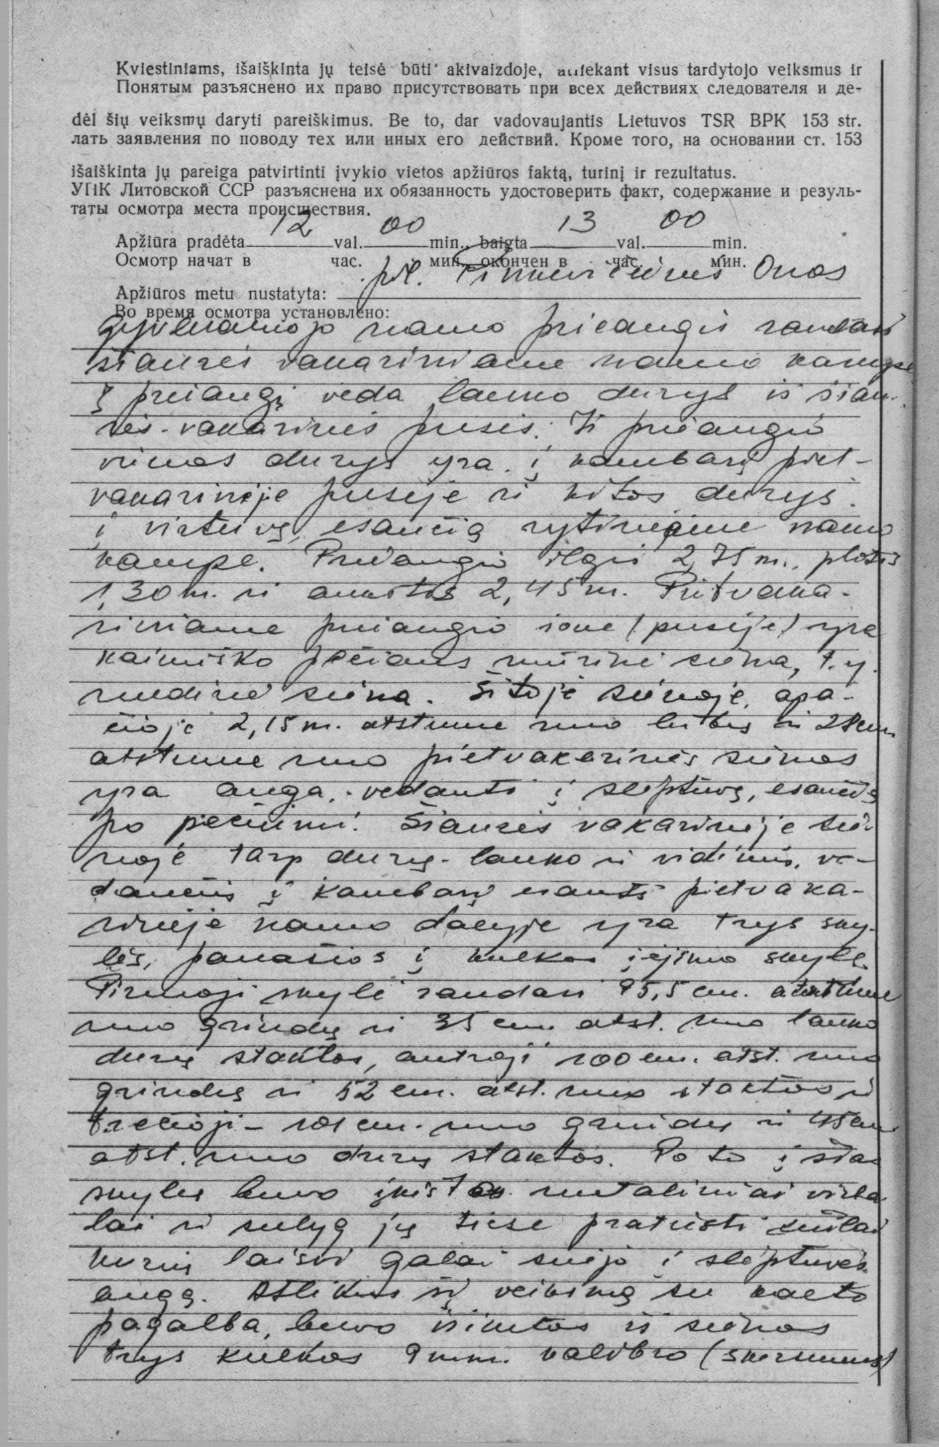 Kviestiniams, išaiškinta jų teisė būti akivaizdoje, atliekant visus tardytojo veiksmus ir
Понятым разъяснено их право присутствовать при всех действиях следователя и де-
dėl šių veiksmų daryti pareiškimus. Be to, dar vadovaujantis Lietuvos TSR BPK 153 str.
лать заявления по поводу тех или иных его действий. Кроме того, на основании ст. 153
išaiškinta jų pareiga patvirtinti įvykio vietos apžiūros faktą, turinį ir rezultatus.
УПК Литовской ССР разъяснена их обязанность удостоверить факт, содержание и резуль-
таты осмотра места происшествия.
Apžiūra pradėta 12 val. 00 min., baigta 13 val. 00 min.
Осмотр начат в час. мин. окончен в час. мин.
Apžiūros metu nustatyta: pil. Onos
Во время осмотра установлено:
gyvenamojo namo prieangis randasi
šiaurės vakariniame namo kampe
Į prieangį veda lauko durys iš šiau-
rės-vakarinės pusės. Iš prieangio
vienos durys yra į kambarį piet-
vakarinėje pusėje ir kitos durys
į virtuvę, esančią rytiniame namo
kampe. Prieangio ilgis 2,75 m., plotis
1,30 m. ir aukštis 2,45 m. Pietvaka-
riniame prieangio šone (pusėje) yra
kaimiško pečiaus mūrinė siena, t.y.
mūrinė siena. Šitoje sienoje, apa-
čioje 2,15 m. atstume nuo lubų ir 28 cm
atstume nuo pietvakarinės sienos
yra anga, vedanti į slėptuvę, esančią
po pečiumi. Šiaurės vakarinėje sie-
noje tarp durų-lauko ir vidinių, ve-
dančių į kambarį esantį pietvaka-
rinėje namo dalyje yra trys sky-
lės, panašios į kulkos įėjimo skyles.
Pirmoji skylė randasi 95,5 cm. atstume
nuo grindų ir 35 cm. atst. nuo lauko
durų staktos, antroji 100 cm. atst. nuo
grindų ir 52 cm. atst. nuo staktos ir
trečioji - 101 cm. nuo grindų ir 45 cm
atst. nuo durų staktos. Po to į šias
skyles buvo įkišta metaliniai virba-
lai ir sulyg jų tiese pratiesti siūlai
kurių laisvi galai suėjo į slėptuvės
angą. Atlikus šį veiksmą su kalto
pagalba, buvo išimtos iš sienos
trys kulkos 9 mm. kalibro (skersmens)